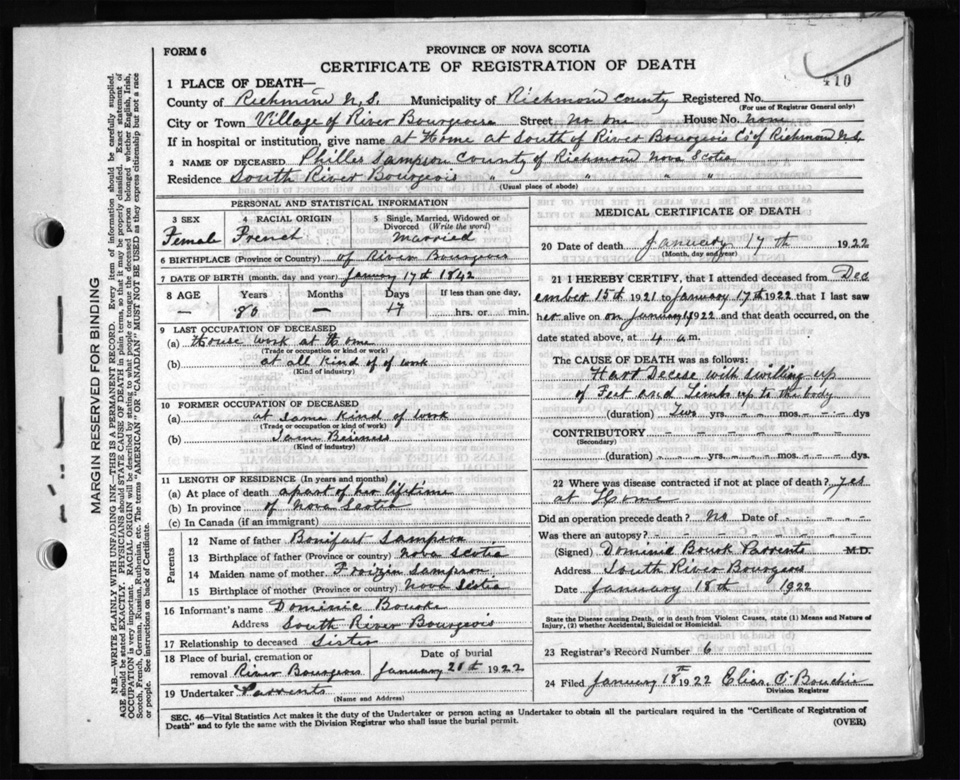 FORM 6
PROVINCE OF NOVA SCOTIA
CERTIFICATE OF REGISTRATION OF DEATH
410
1 PLACE OF DEATH—
County of Richmond N.S. Municipality of Richmond County Registered No.
(For use of Registrar General only)
City or Town Village of River Bourgeois Street No one House No. none
If in hospital or institution, give name at Home at South of River Bourgeois Co. of Richmond N.S.
2 NAME OF DECEASED Philles Sampson County of Richmond Nova Scotia
Residence South River Bourgeois " " " "
(Usual place of abode)
PERSONAL AND STATISTICAL INFORMATION
3 SEX Female
4 RACIAL ORIGIN French
5 Single, Married, Widowed or Divorced (Write the word) Married
6 BIRTHPLACE (Province or Country) of River Bourgeois
7 DATE OF BIRTH (month, day and year) January 17th 1842
8 AGE Years Months Days If less than one day,
— 80 — 17 ..... hrs. or ..... min.
9 LAST OCCUPATION OF DECEASED
(a) House work at Home
(Trade or occupation or kind or work)
(b) at all kind of of work
(Kind of industry)
10 FORMER OCCUPATION OF DECEASED
(a) at same kind of work
(Trade or occupation or kind of work)
(b) Same Beisness
(Kind of industry)
11 LENGTH OF RESIDENCE (In years and months)
(a) At place of death apart of her lifetime
(b) In province of Nova Scotia
(c) In Canada (if an immigrant)
Parents
12 Name of father Bonifart Sampson
13 Birthplace of father (Province or country) Nova Scotia
14 Maiden name of mother Sampson
15 Birthplace of mother (Province or country) Nova Scotia
16 Informant's name Dominic Bourk
Address South River Bourgeois
17 Relationship to deceased Sister
18 Place of burial, cremation or removal River Bourgeois
Date of burial January 20th 1922
19 Undertaker Parrents
(Name and Address)
MEDICAL CERTIFICATE OF DEATH
20 Date of death January 17th 1922
(Month, day and year)
21 I HEREBY CERTIFY, that I attended deceased from Dec
ember 15th 1921 to January 17th 1922 that I last saw
her alive on on January 1922 and that death occurred, on the
date stated above, at 4 a.m.
The CAUSE OF DEATH was as follows:
Hart Decese with swilling up
of Feet and Limbs up to the body
(duration) Two yrs. — — mos. — — — dys
CONTRIBUTORY — — — — — — — —
(Secondary)
(duration) — — — yrs. — — — mos. — — — dys.
22 Where was disease contracted if not at place of death? yes
at Home
Did an operation precede death? No Date of — — — —
Was there an autopsy? — — — — — — — —
(Signed) Dominic Bourk Parrents M.D.
Address South River Bourgeois
Date January 18th 1922
State the Disease causing Death, or in death from Violent Causes, state (1) Means and Nature of Injury, (2) whether Accidental, Suicidal or Homicidal.
23 Registrar's Record Number 6
24 Filed January 18th 1922
Division Registrar
SEC. 46—Vital Statistics Act makes it the duty of the Undertaker or person acting as Undertaker to obtain all the particulars required in the "Certificate of Registration of
Death" and to fyle the same with the Division Registrar who shall issue the burial permit.
(OVER)
MARGIN RESERVED FOR BINDING
N.B.—WRITE PLAINLY WITH UNFADING INK—THIS IS A PERMANENT RECORD. Every item of information should be carefully supplied.
AGE should be stated EXACTLY. PHYSICIANS should STATE CAUSE OF DEATH in plain terms, so that it may be properly classified. Exact statement of
OCCUPATION is very important. RACIAL ORIGIN will be described by stating to what people or tongue the deceased person belonged, whether English, Irish,
Scotch, French, German, Russian, Ruthenian, etc. The terms "AMERICAN" OR "CANADIAN" MUST NOT BE USED as they express citizenship but not a race
or people. See instructions on back of Certificate.